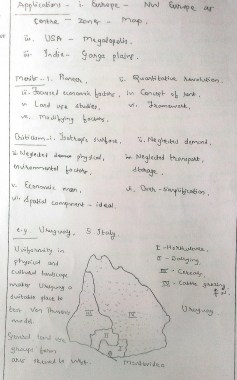 Application - i. Europe - NW Europe as
centre - zones - Map.
ii. USA - Megalopolis.
iii. India - Ganga plains.
Merits - i. Pioneer, ii. Quantitative revolution.
iii. Focused economic factors, iv. Concept of rent.
v. Land use studies, vi. Framework.
vii. Modifying factors.
Criticism - i. Isotropic surface, ii. Neglected demand,
iii. Neglected physical, iv. Neglected transport,
environmental factors, storage,
v. Economic man, vi. Over-simplification,
vii. Spatial component - ideal.
e.g. Uruguay, S. Italy.
Uniformity in
physical and
cultural landscape
makes Uruguay a
suitable place to
test Von Thunen
model.
land use
groups
around the
I - Horticulture,
II - Dairying
III - Cereals,
IV - Cattle grazing,
Uruguay
III
IV
II
I
Montevideo